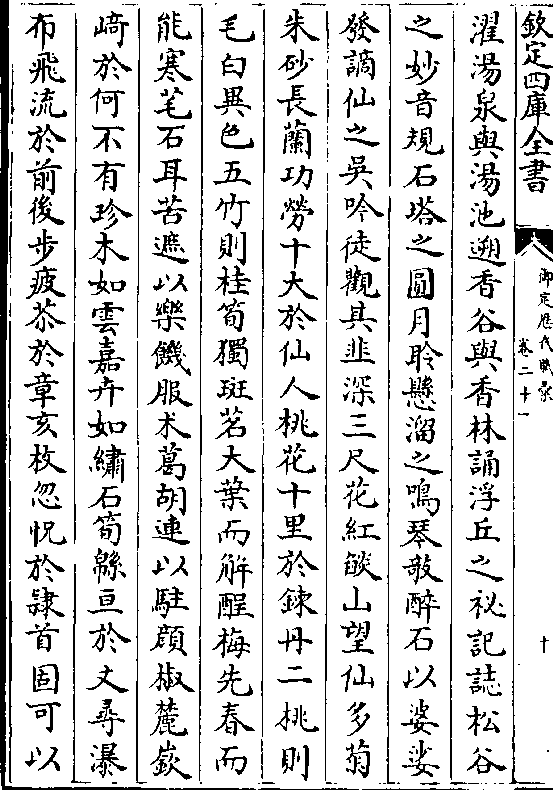 欽定四庫全書
御定歷代賦彙
卷二十一
十
濯湯泉與湯池遡香谷與香林誦浮丘之祕記誌松谷
之妙音規石塔之圓月聆懸溜之鳴琴敲醉石以婆娑
發謫仙之吳吟徒觀其韭深三尺花紅燄山望仙多菊
朱砂長蘭功勞十大於仙人桃花十里於鍊丹二桃則
毛白異色五竹則桂筍獨斑茗大葉而解酲梅先春而
能寒芼石耳苦遮以樂饑服朮葛胡連以駐顔椒麓嶔
﨑於何不有珍木如雲嘉卉如繡石筍緜亘於丈尋瀑
布飛流於前後步疲苶於章亥枚忽怳於隷首固可以